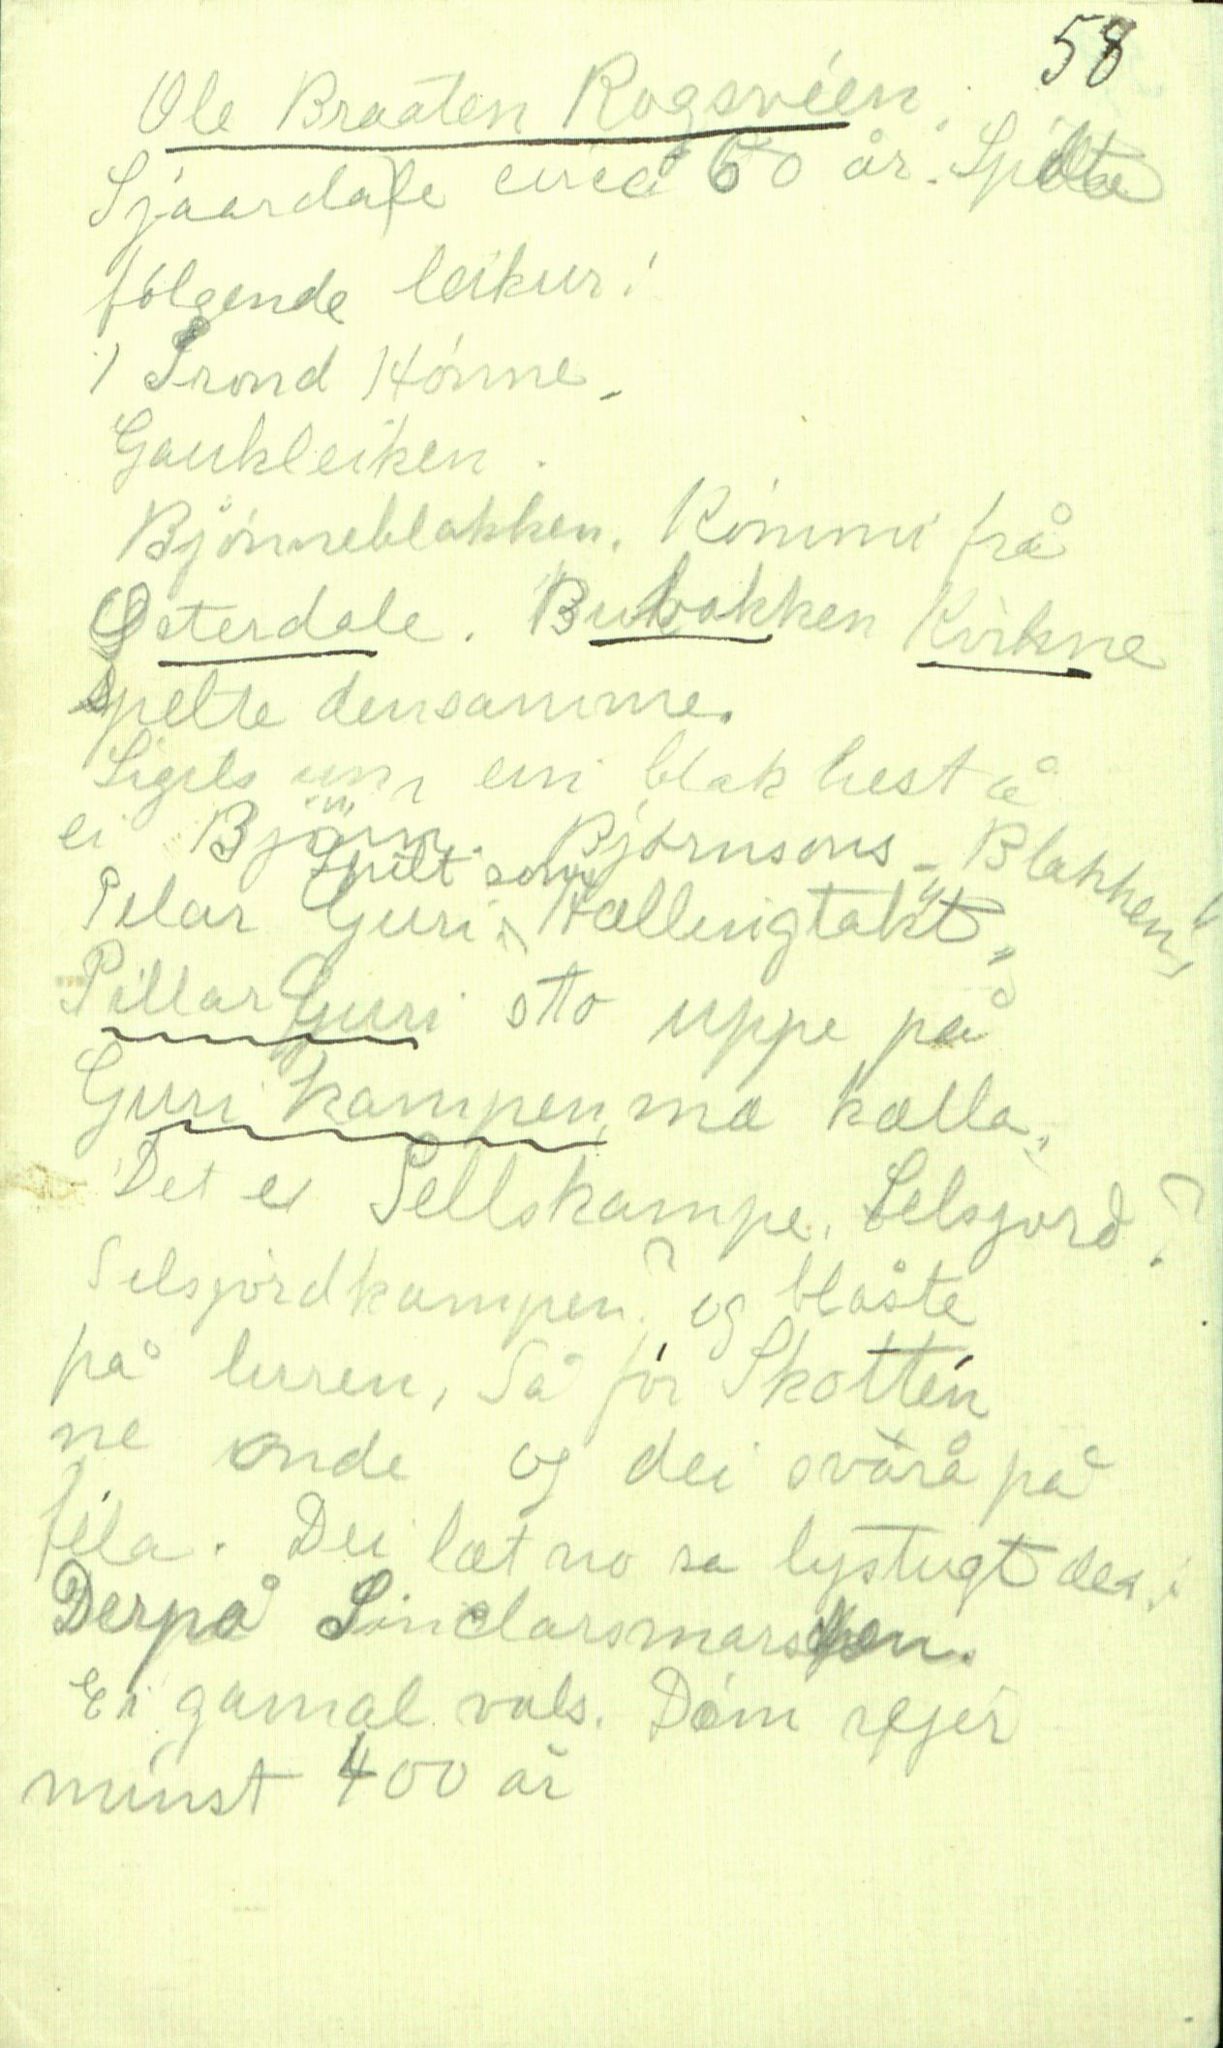 58
Ole Braaten Rogsvéen.
Sjaardale circa 60 år. Spelte
følgende leikur:
1 Trond Hónne.
Gaukleiken.
Bjónneblakken. Kómmi frå
Østerdale. Bubakken Kvikne
spelte densamme.
um ein blak hest å
ei Bjönn. Bjørnsons - Blakken
Spilt som
Pilar Guri Hallingtakt
Pillar Guri sto uppe på
Guri kampen, mæ kalla.
Det er Sellskampe. Selsjord?
Selsjordkampen? og blåste
på luren, Så fór Skottén
ne onde og dei svårå på
féla. Dei læt no sa lystugt der.
Derpå Sinclarsmarschen.
Ei gamal vals. Dóm sejér
minst 400 år